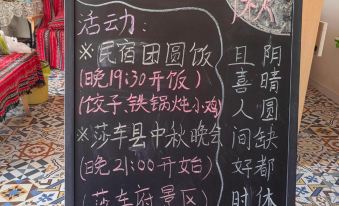 活动:
※民宿团圆饭
(晚19:30开饭)
(饺子铁锅炖小鸡)
※莎车县中秋晚会
(晚21:00开始)
(莎车府景区)
阴晴圆缺都休
且喜人间好时